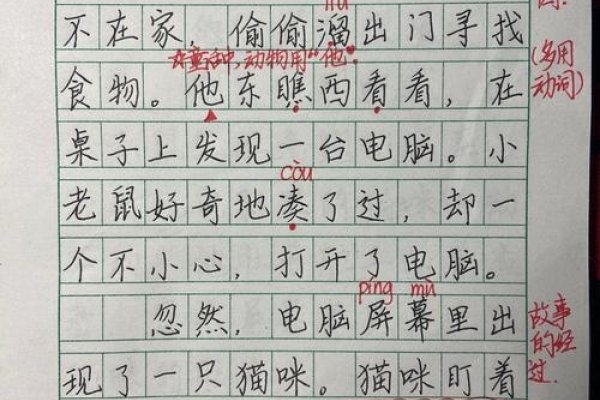 liū
不在家，偷偷溜出门寻找
☆童话中，动物用“他”。
食物。他东瞧西看看，在
(多用
动词)
桌子上发现一台电脑。小
còu
老鼠好奇地凑了过，却一
个不小心，打开了电脑。
píng mù
忽然，电脑屏幕里出
故事
的经
过.
现了一只猫咪。猫咪盯着